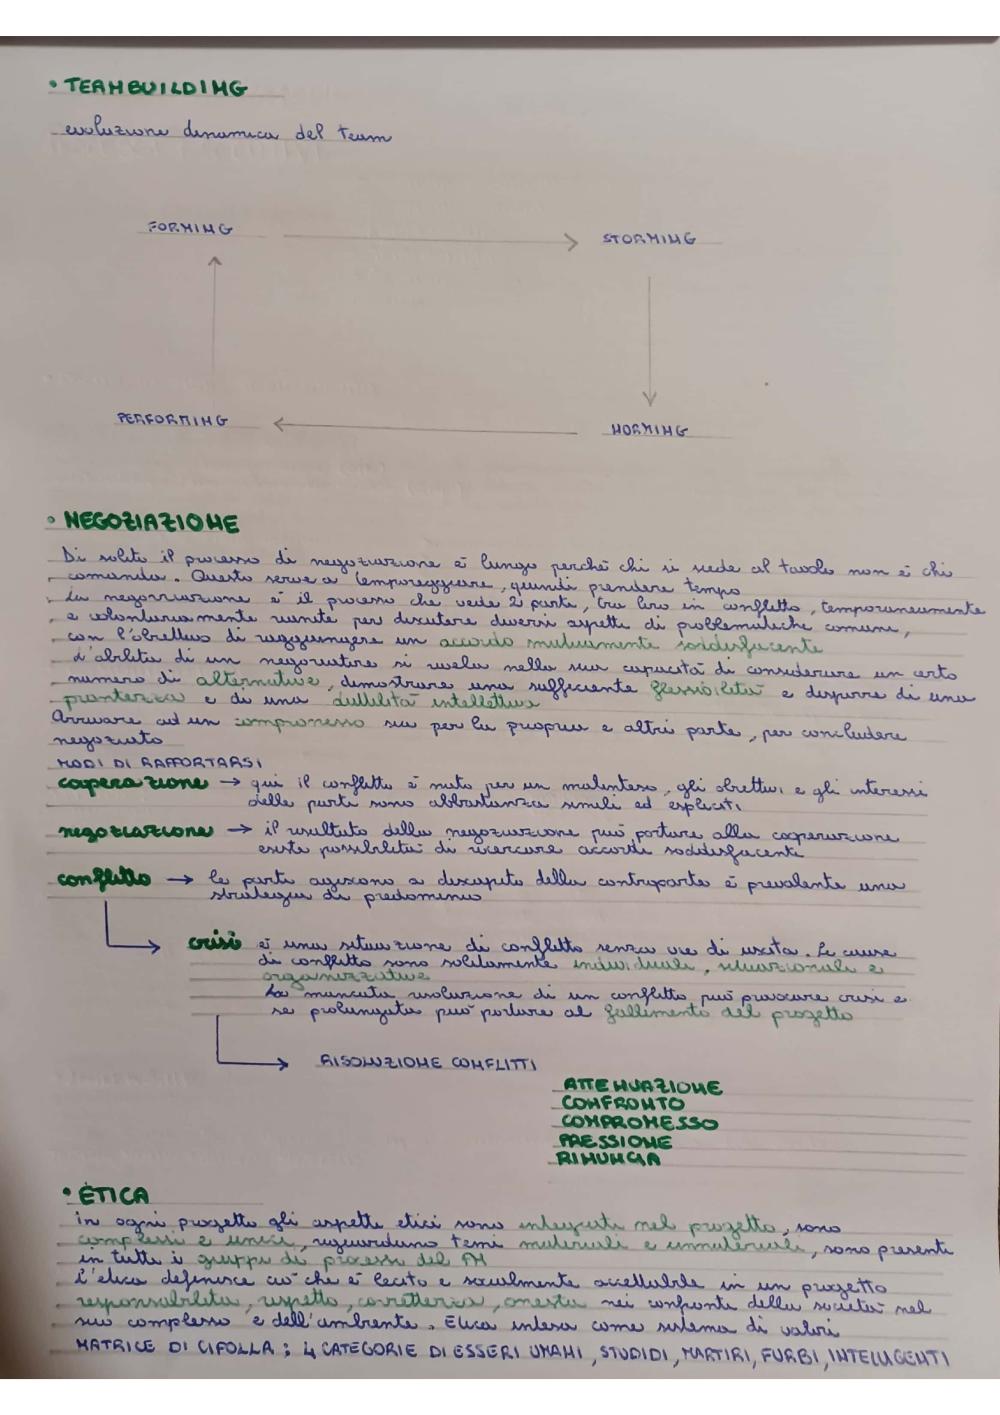 • TEAMBUILDING
evoluzione dinamica del team
FORMING
STORMING
PERFORMING
NORMING
• NEGOZIAZIONE
Di solito il processo di negoziazione è lungo perché chi si siede al tavolo non è chi
comanda. Questo serve a temporeggiare, quindi prendere tempo
La negoziazione è il processo che vede 2 parti, tra loro in conflitto, temporaneamente
e volontariamente riunite per discutere diversi aspetti di problematiche comuni,
con l'obiettivo di raggiungere un accordo mutuamente soddisfacente
L'abilità di un negoziatore si rivela nella sua capacità di considerare un certo
numero di alternative, dimostrare una sufficiente flessibilità e disporre di una
prontezza e di una duttilità intellettiva
Arrivare ad un compromesso sia per la propria e altri parte, per concludere
negoziato
MODI DI RAPPORTARSI
cooperazione → qui il conflitto è nato per un malinteso, gli obiettivi e gli interessi
delle parti sono abbastanza simili ed espliciti
negoziazione → il risultato della negoziazione può portare alla cooperazione
esiste possibilità di ricercare accordi soddisfacenti
conflitto → le parti agiscono a discapito della controparte è prevalente una
strategia di predominio
crisi è una situazione di conflitto senza vie di uscita. Le cause
di conflitto sono solitamente individuali, situazionali e
organizzative
La mancata risoluzione di un conflitto può provocare crisi e
se prolungata può portare al fallimento del progetto
RISOLUZIONE CONFLITTI
ATTENUAZIONE
CONFRONTO
COMPROMESSO
PRESSIONE
RINUNCIA
• ETICA
in ogni progetto gli aspetti etici sono integrati nel progetto, sono
complessi e unici, riguardano temi materiali e immateriali, sono presenti
in tutti i gruppi di processi del PM
L'etica definisce ciò che è lecito e socialmente accettabile in un progetto
responsabilità, rispetto, correttezza, onestà nei confronti della società nel
suo complesso e dell'ambiente. Etica intesa come sistema di valori
MATRICE DI CIPOLLA: 4 CATEGORIE DI ESSERI UMANI, STUDIDI, MARTIRI, FURBI, INTELLIGENTI